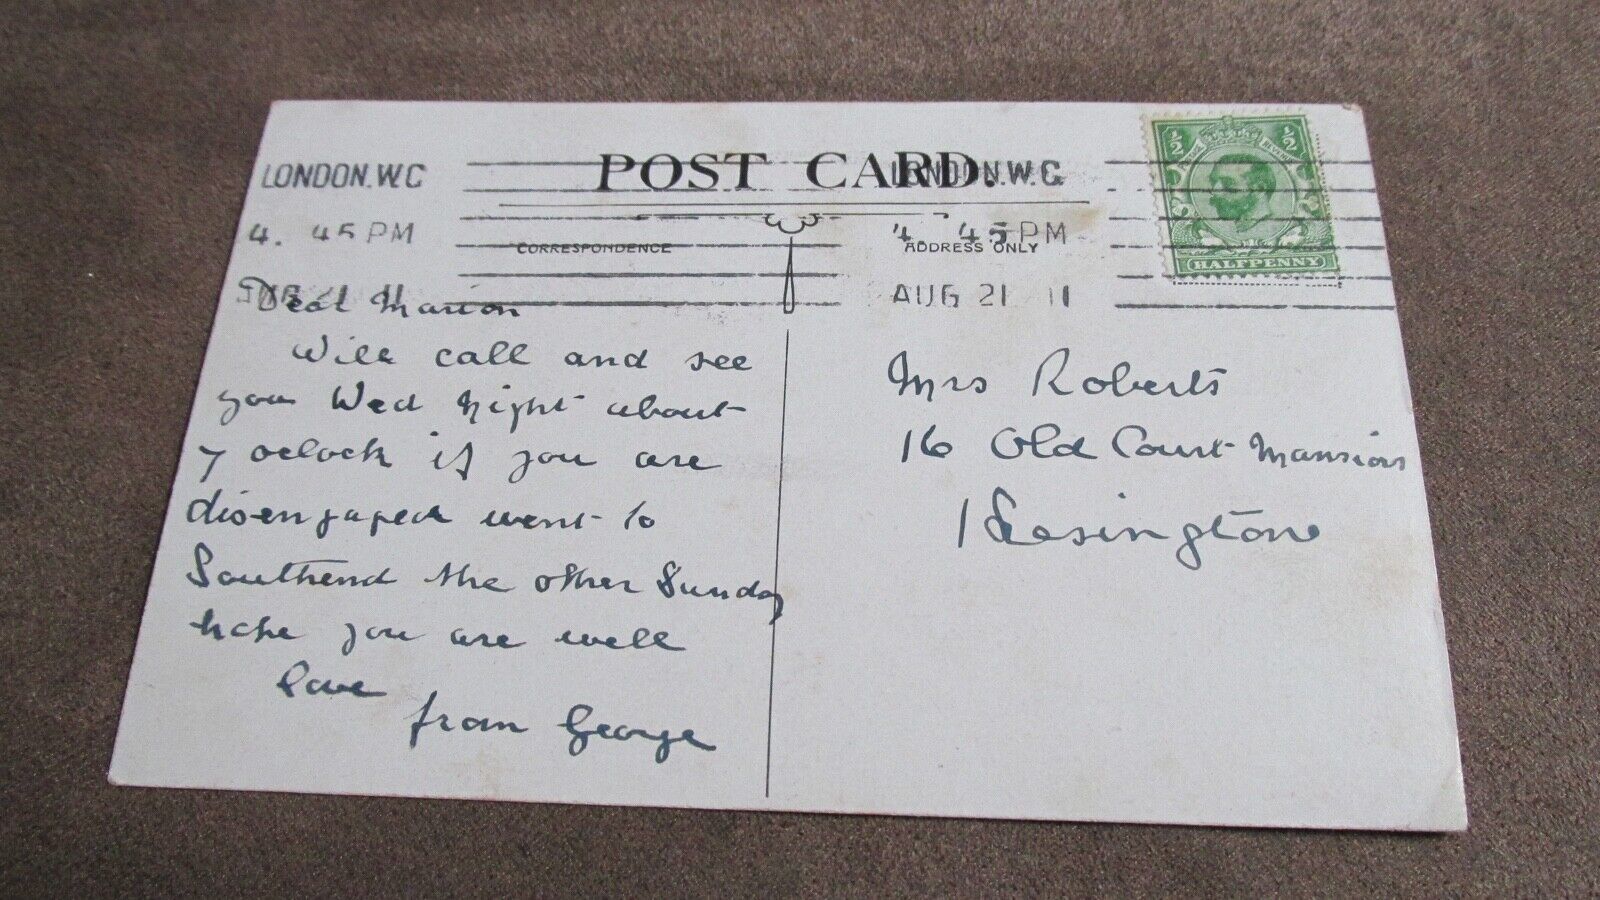 POST CARD.
LONDON.W.C
4. 45 PM
AUG 21 11
LONDON.W.C.
4. 45 PM
AUG 21 11
½ ½
HALFPENNY
CORRESPONDENCE
ADDRESS ONLY
Dear Marion
Will call and see
you Wed night about
7 oclock if you are
disengaged went to
Southend the other Sunday
hope you are well
love
from George
Mrs Roberts
16 Old Court Mansions
Kensington